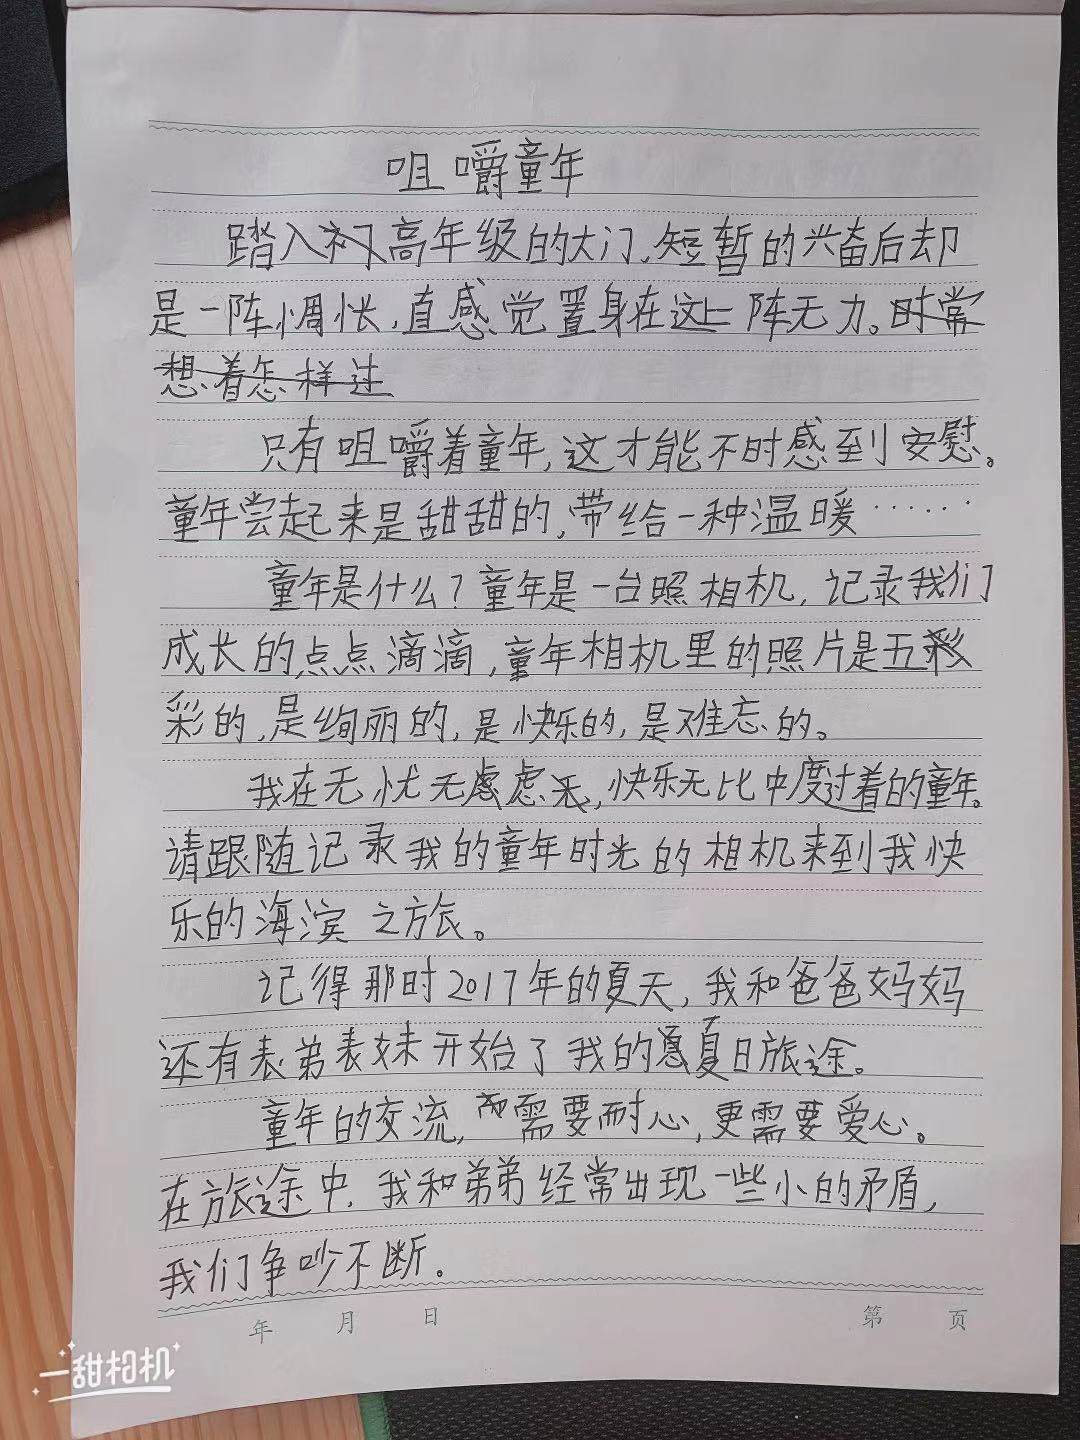 咀嚼童年
踏入初高年级的大门,短暂的兴奋后却
是一阵惆怅,直感觉置身在这上阵无力。时常
想着怎样过
只有咀嚼着童年,这才能不时感到安慰。
童年尝起来是甜甜的,带给一种温暖······
童年是什么?童年是一台照相机,记录我们
成长的点点滴滴,童年相机里的照片是五彩
彩的,是绚丽的,是快乐的,是难忘的。
我在无忧无虑虑无,快乐无比中度过着的童年。
请跟随记录我的童年时光的相机来到我快
乐的海滨之旅。
记得那时2017年的夏天,我和爸爸妈妈
还有表弟表妹开始了我的夏日旅途。
童年的交流,需要耐心,更需要爱心。
在旅途中,我和弟弟经常出现一些小的矛盾,
我们争吵不断。
年 月 日 第 页
一甜相机